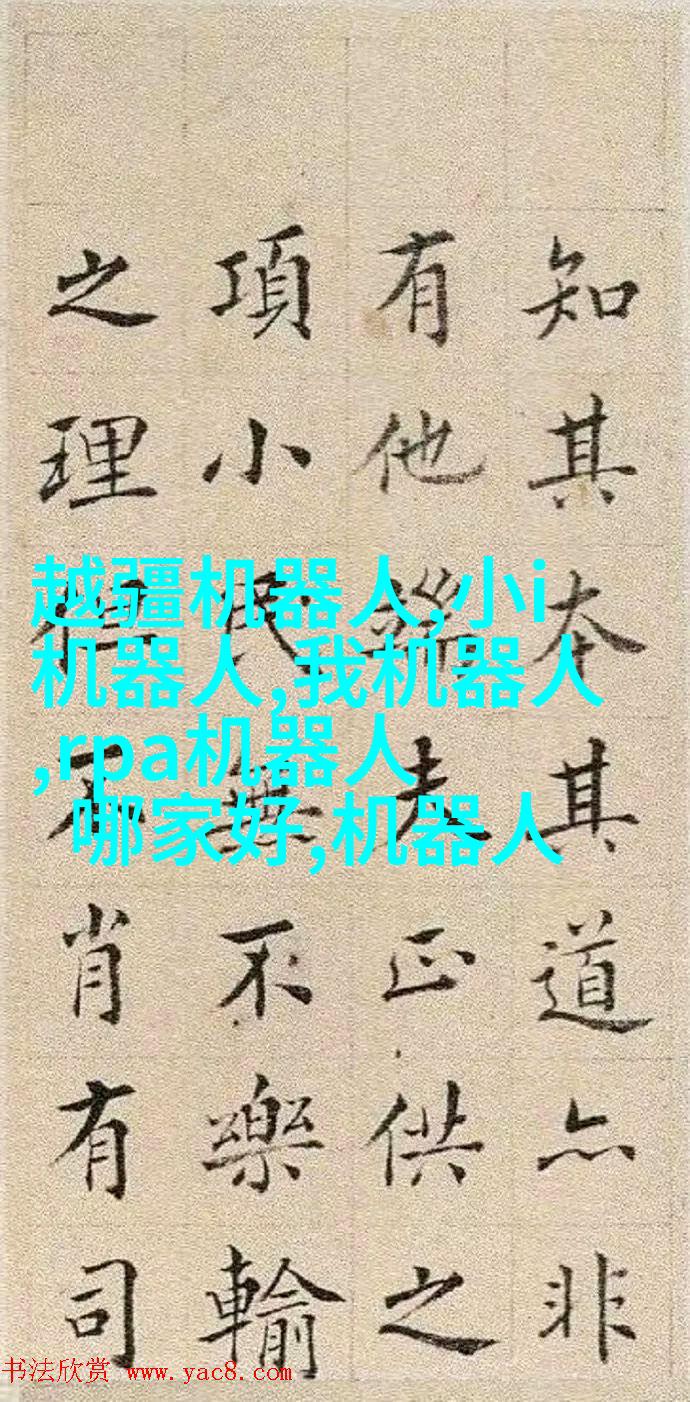 知其本其道亦非
有他端夫正供之
項小民無不樂輸
之理不肖有司
越疆机器人,小i
机器人,我机器人
,rpa机器人
哪家好,机器人
书法欣赏 www.yac8.com